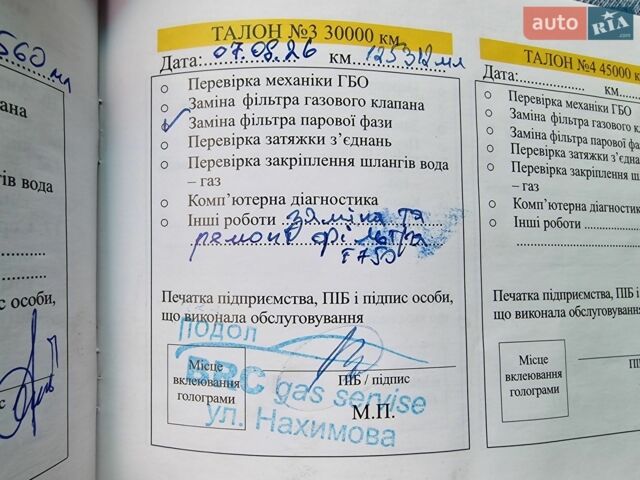 560 мл
ана
гів вода
с особи,
с
auto RIA .com
ТАЛОН №3 30000 км
Дата: 07.08.26 км. 125312 мл
Перевірка механіки ГБО
Заміна фільтра газового клапана
Заміна фільтра парової фази
Перевірка затяжки з’єднань
Перевірка закріплення шлангів вода
– газ
Комп’ютерна діагностика
Інші роботи заміна та
ремонт фільтра
Печатка підприємства, ПІБ і підпис особи,
що виконала обслуговування
ПОДОЛ
BRC gas servise
ул. Нахимова
Місце
вклеювання
голограми
ПІБ / підпис
М.П.
ТАЛОН №4 45000
Дата: км
Перевірка механіки ГБО
Заміна фільтра газового к
Заміна фільтра парової ф
Перевірка затяжки з’єдн
Перевірка закріплення ш
– газ
Комп’ютерна діагност
Інші роботи
Печатка підприємства, ПІБ
що виконала обслуговува
Місце
вклеювання
голограми